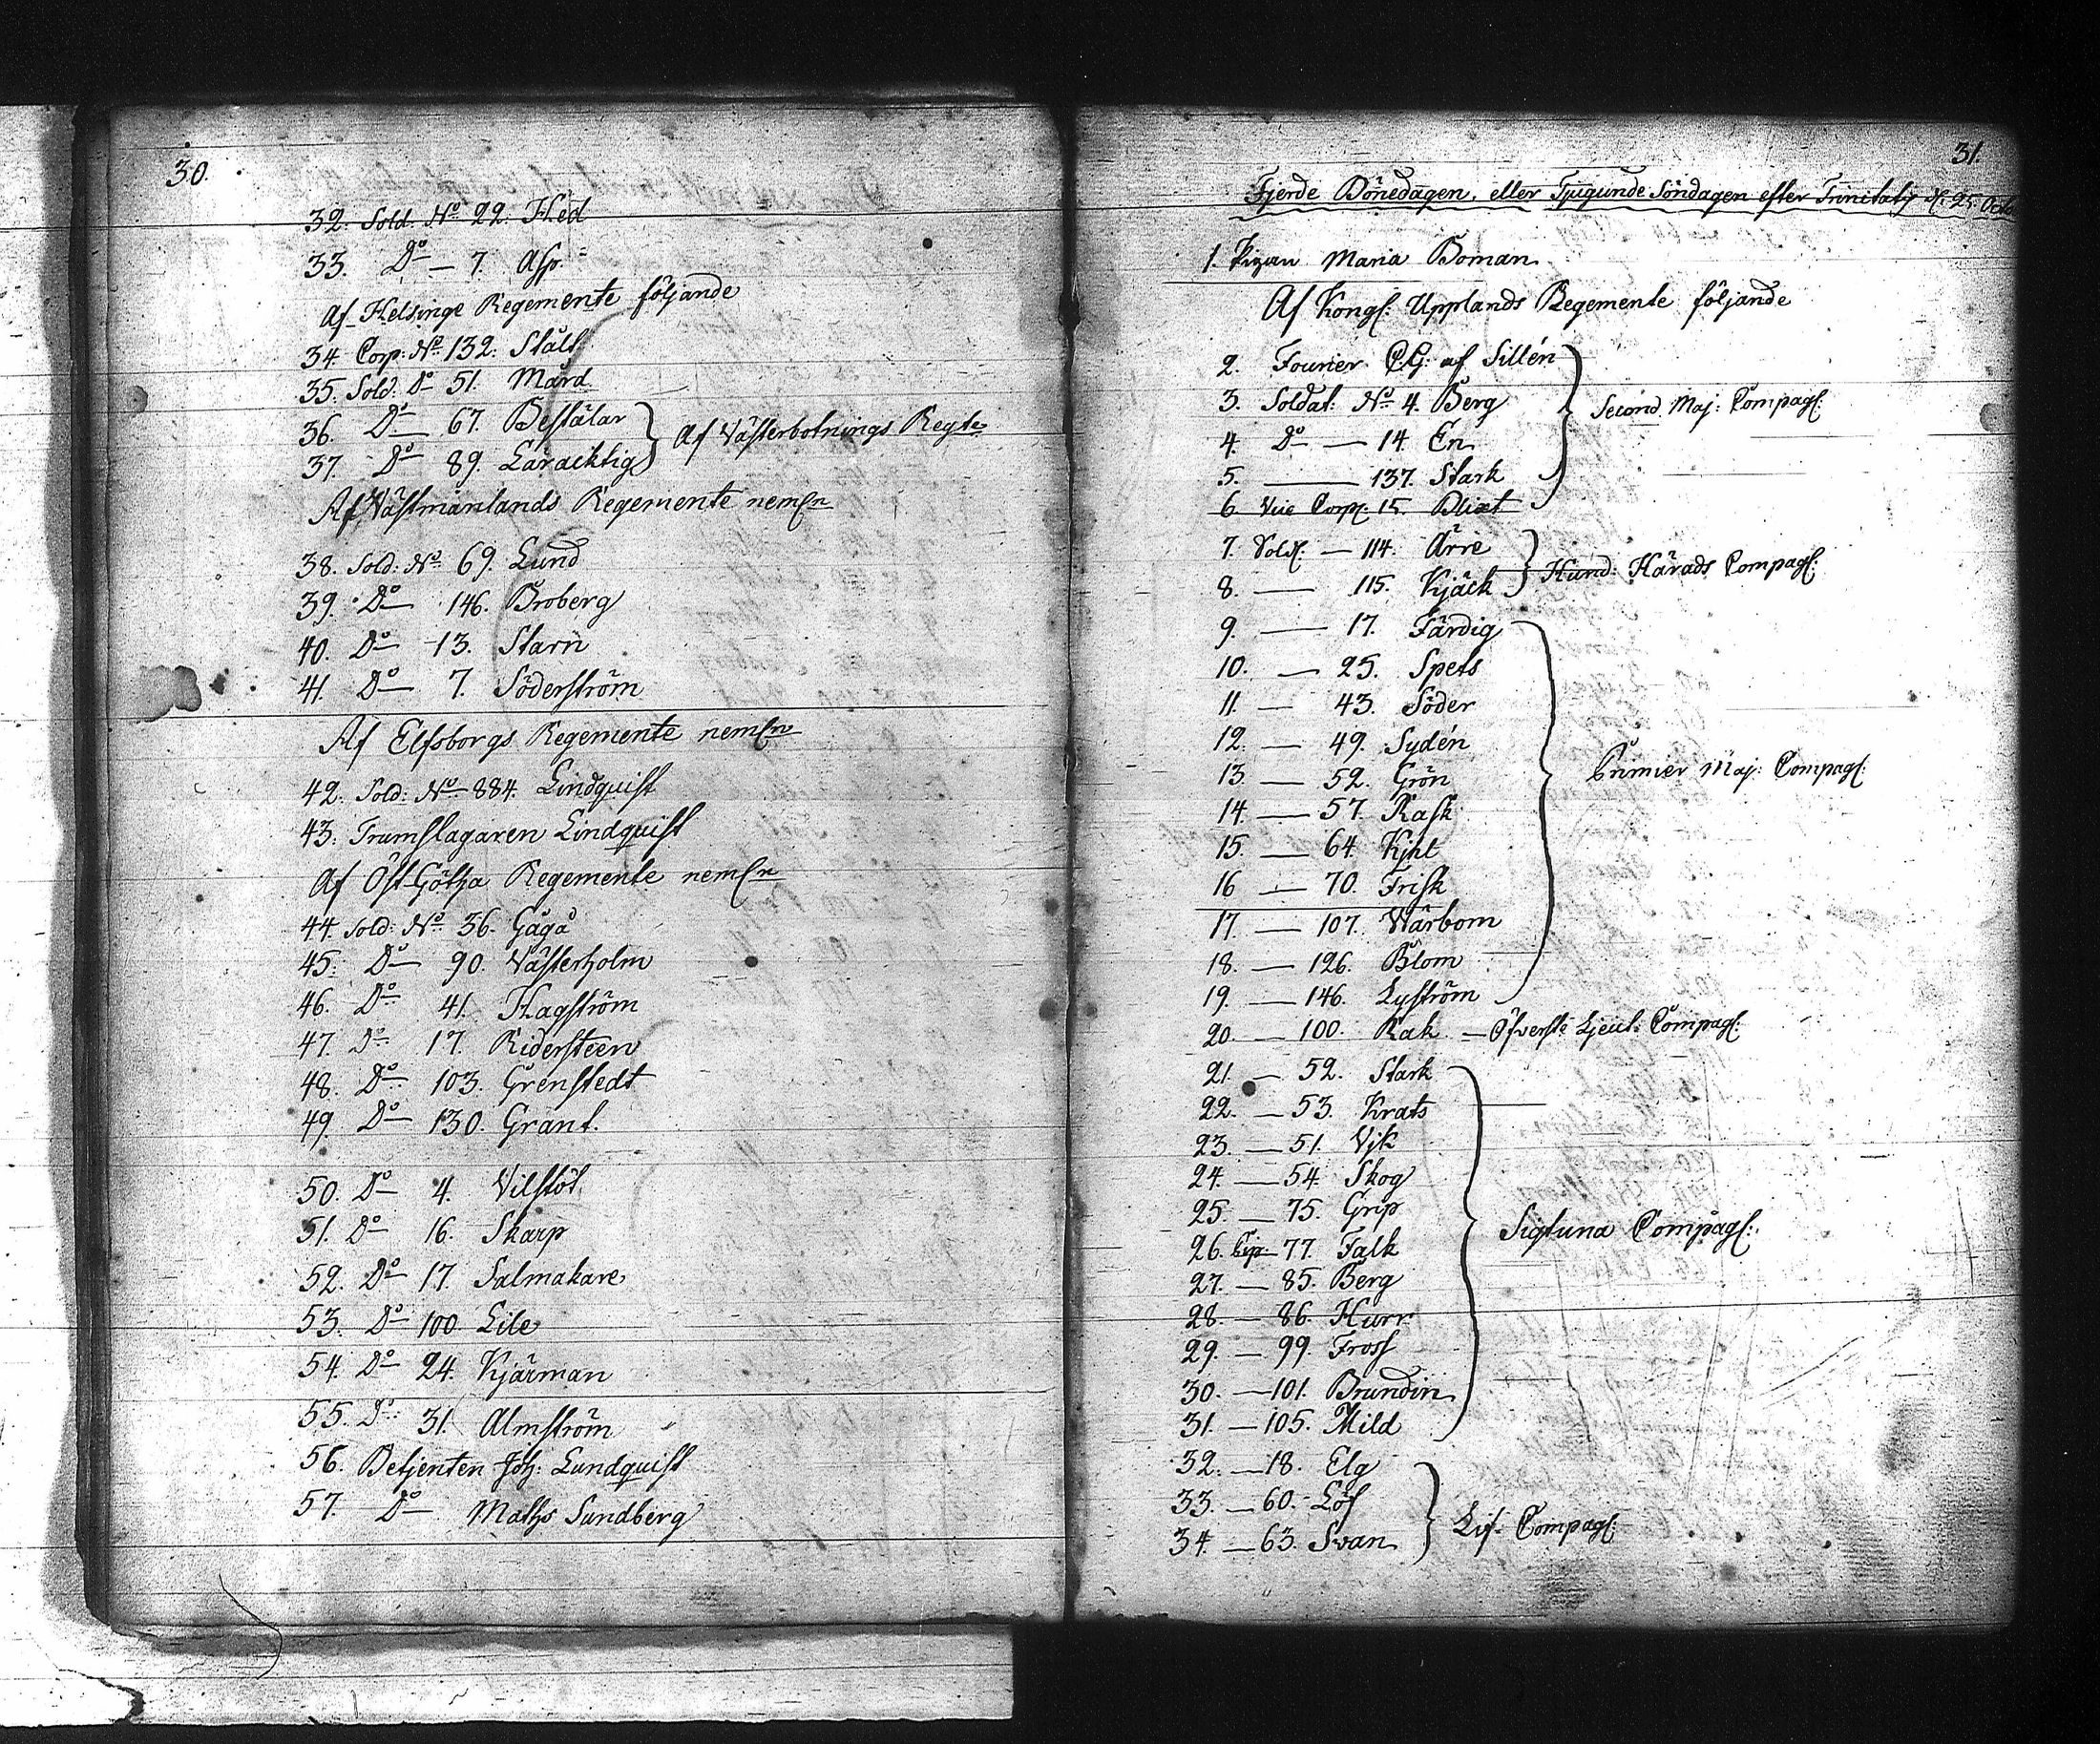 30.
32. Sold. No 22. Hed
33. Do — 7. Asp.
Af Helsinge Regemente följande
34. Corp: No 132. Stålt
35. Sold: Do 51. Mård
36. Do — 67. Beställar
37. Do 89. Laracktig
Af Västerbotnings Regte
Af Västmanlands Regemente neml:n
38. Sold: No 69. Lund
39. Do — 146. Broberg
40. Do — 13. Starn
41. Do — 7. Söderström
Af Elfsborgs Regemente neml:n
42. Sold: No 884. Lindquist
43. Trumslagaren Lindquist
Af Öst-Götha Regemente neml:n
44. Sold: No 36. Gågå
45. Do — 90. Västerholm
46. Do 41. Hagström
47. Do 17. Ridersteen
48. Do 103. Grenstedt
49. Do — 130. Grant.
50. Do — 4. Vilstöt
51. Do — 16. Skarp
52. Do — 17. Salmakare
53. Do — 100. Lile
54. Do — 24. Kjärman
55. Do 31. Almström
56. Betjenten Joh: Lundquist
57. Do — Maths Sundberg
31.
Fjerde Bönedagen, eller Tjugunde Söndagen efter Trinitatis d. 25. Octo
1. Pigan Maria Boman
Af Kongl: Upplands Regemente följande
2. Fourier C.G. af Sillén
3. Soldat: No 4. Berg
4. Do — 14 En
5. — 137. Stark
6 Vice Corpl. 15. Blixt
Second Maj: Compagl:
7. Sold. — 114. Ärre
8. — 115. Kjäck
Hund: Härads Compagl:
9. — 17. Färdig
10. — 25. Spets
11. — 43. Söder
12. — 49. Sydén
13. — 52. Grön
14. — 57. Rask
15. — 64. Kjhl
16 — 70. Frisk
17. — 107. Wårbom
18. — 126. Blom
19. — 146. Lyström
Primier Maj: Compagl:
20. — 100. Rak — Öfverste Ljeut: Compagl:
21. — 52. Stark
22. — 53. Krats
23. — 51. Vjk
24. — 54. Skog
25. — 75. Grip
26. Corp — 77. Falk
27. — 85. Berg
28. — 86. Hurr
29. — 99. Frost
30. — 101. Brundin
31. — 105. Mild
Sigtuna Compagl:
32. — 18. Elg
33. — 60. Löf
34. — 63. Svan
Lif- Compagl: